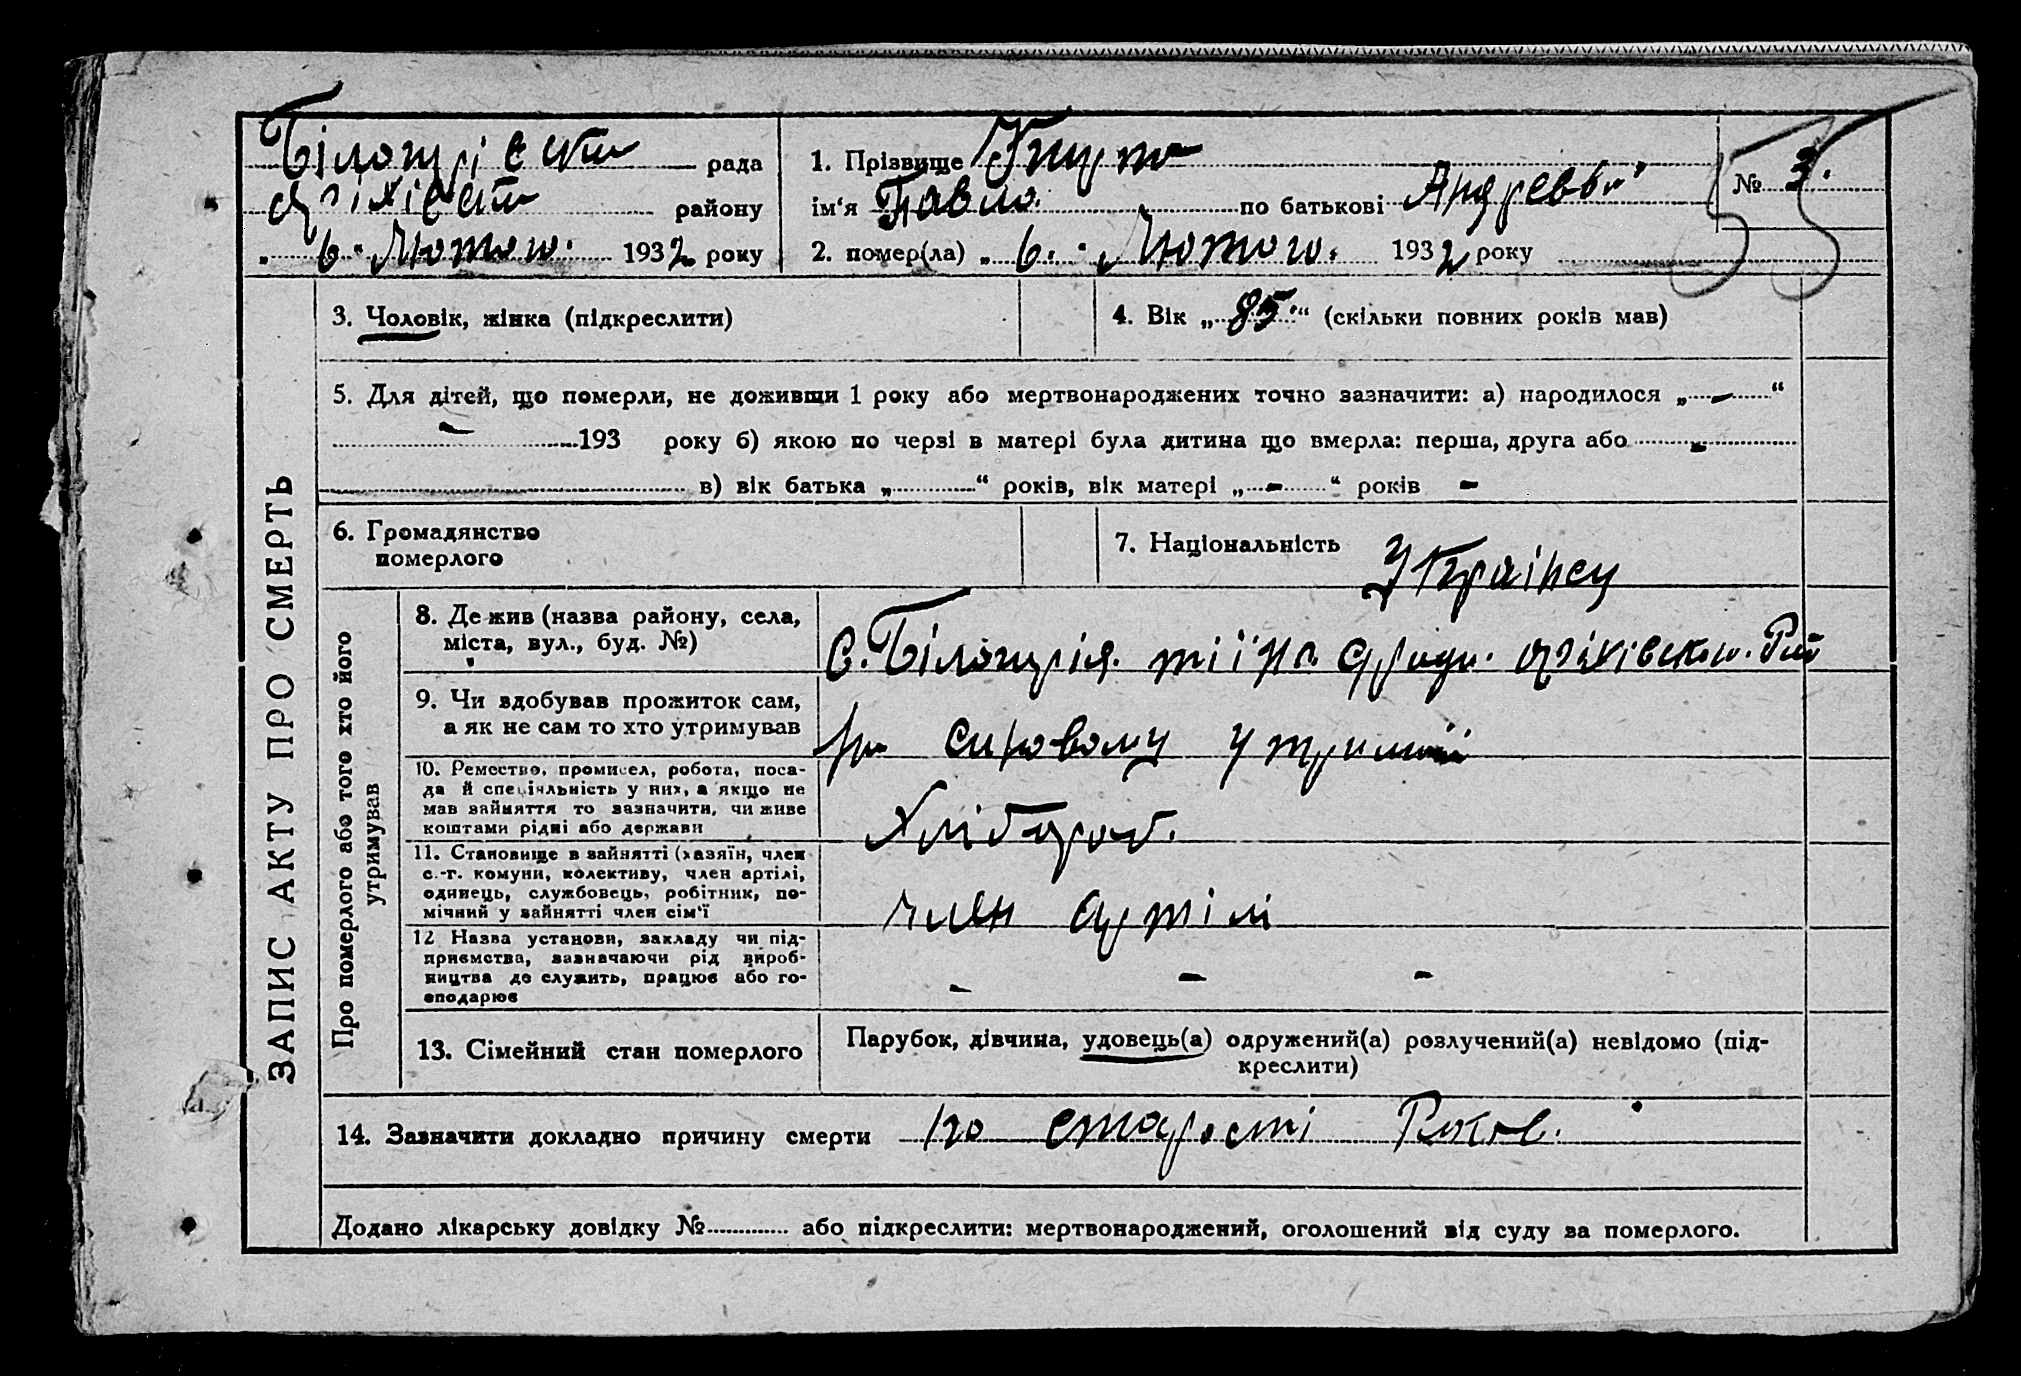 Білогірівська рада
Оріхівськ району
„ 6. Лютого. 1932 року
1. Прізвище Гнура
ім'я Павло. по батькові Андреевич
№ 3.
2. помер(ла) „ 6. Лютого. 1932 року
ЗАПИС АКТУ ПРО СМЕРТЬ
3. Чоловік, жінка (підкреслити)
4. Вік „ 85 “ (скільки повних років мав)
5. Для дітей, що померли, не доживши 1 року або мертвонароджених точно зазначити: а) народилося „ - “
- 193 року б) якою по черзі в матері була дитина що вмерла: перша, друга або -
в) вік батька „ “ років, вік матері „ - “ років -
6. Громадянство
померлого
7. Національність Українец
Про померлого або того хто його
утримував
8. Де жив (назва району, села,
міста, вул., буд. №)
с. Білогірія. Оріхівсько. Рай
9. Чи здобував прожиток сам,
а як не сам то хто утримував
на синовому утриманні
10. Ремество, промисел, робота, поса-
да й спеціяльність у них, а якщо не
мав зайняття то зазначити, чи живе
коштами рідні або держави
Хлібороб.
11. Становище в зайнятті (хазяїн, член
с.-г. комуни, колективу, член артілі,
одинець, службовець, робітник, по-
мічний у зайнятті член сім'ї
член артілі
12 Назва установи, закладу чи під-
приємства, зазначаючи рід вироб-
ництва де служить, працює або го-
сподарює
- - -
13. Сімейний стан померлого
Парубок, дівчина, удовець(а) одружений(а) розлучений(а) невідомо (під-
креслити)
14. Зазначити докладно причину смерти по старости Років.
Додано лікарську довідку № або підкреслити: мертвонароджений, оголошений від суду за померлого.